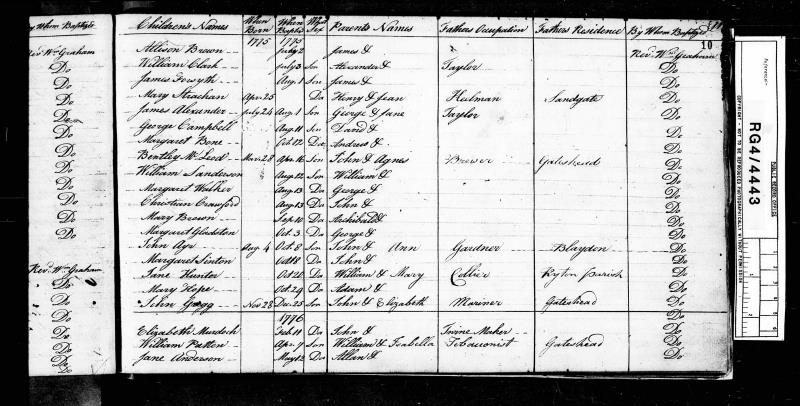 Children's Names When Born When Baptz'd Parents Names Fathers Occupation Fathers Residence By Whom Baptiz'd
10
1775 1775
Allison Brown July 2 James & Rev. Wm Graham
William Clark July 3 Son Alexander & Taylor Do
James Forsyth Aug. 1 Son James & Do
Mary Strachan Apr. 25 Da Henry & Jean Keelman Sandgate Do
James Alexander July 24 Aug. 1 Son George & Jane Taylor Do
George Campbell Aug. 11 Son David & Do
Margaret Bone Oct. 12 Da Andrew & Do
Bentley McLeod Mar. 28 Apr. 16 Son John & Agnes Brewer Gateshead Do
William Sanderson Aug. 12 Son William & Do
Margaret Walker Aug. 13 Da George & Do
Christian Crawford Aug. 13 Da John & Do
Mary Brown Sep. 10 Da Archibald & Do
Margaret Gladston Oct. 3 Da George & Do
John Ayr Aug. 4 Oct. 8 Son John & Ann Gardner Blaydon Do
Margaret Sinton Oct. 18 Da John & Do
Jane Hunter Oct. 28 Da William & Mary Collier Ryton Parish Do
Mary Hope Oct. 29 Da Adam & Do
John Gregg Nov. 28 Dec. 25 Son John & Elizabeth Mariner Gateshead Do
1776
Elizabeth Murdoch Feb. 11 Da John & Twine Maker Do
William Patton Apr. 7 Son William & Isabella Tobacconist Gateshead Do
Jane Anderson May 12 Da Allan & Do
By Whom Baptiz'd
Rev. Wm Graham
Do
Do
Do
Do
Do
Do
Do
Do
Do
Do
Do
Rev. Wm Graham
Do
Do
Do
Do
Do
Do
Reference:-
RG4/4443
PUBLIC RECORD OFFICE
COPYRIGHT - NOT TO BE REPRODUCED PHOTOGRAPHICALLY WITHOUT PERMISSION